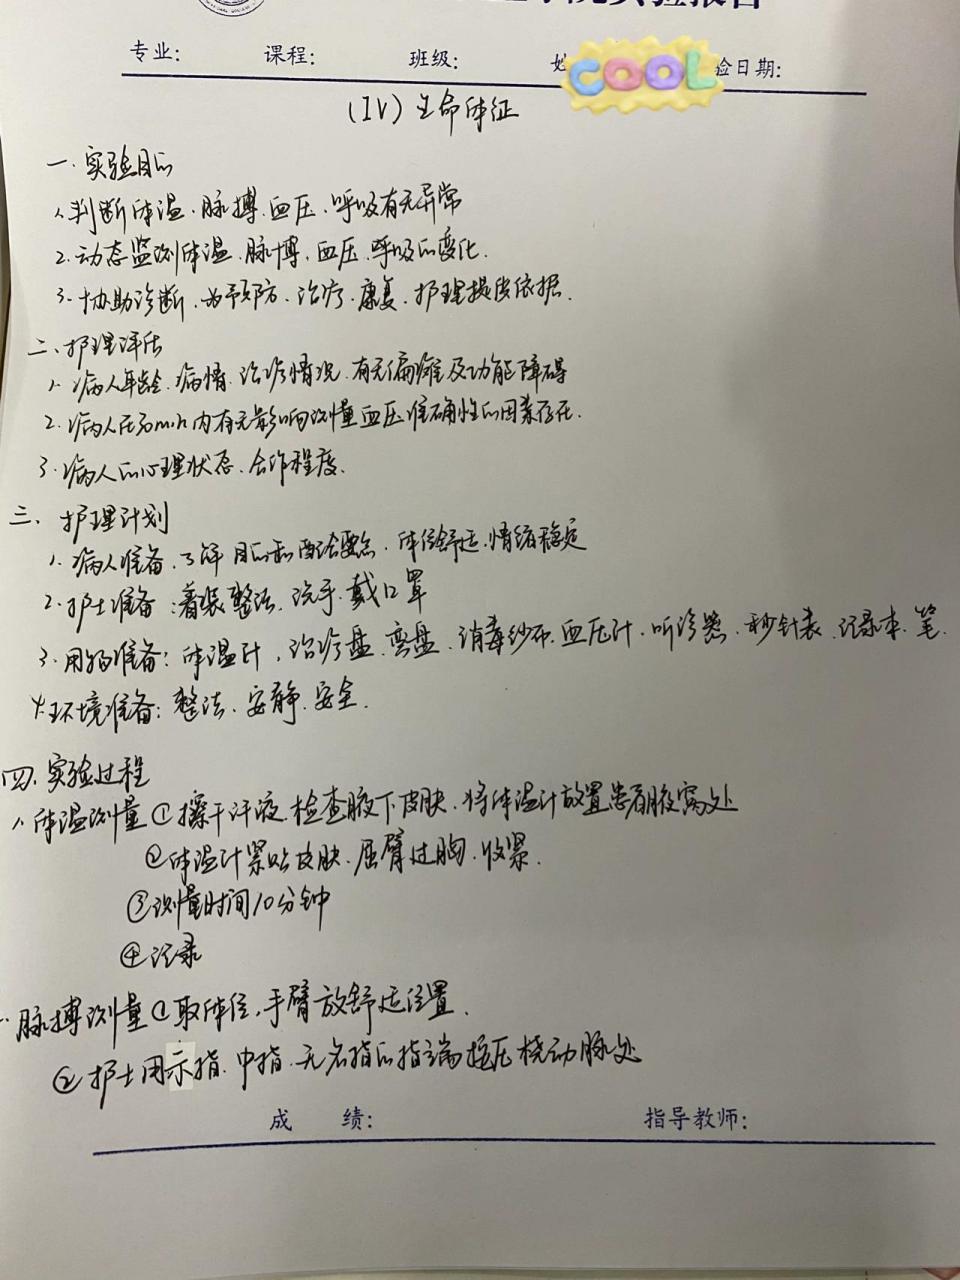 学院实验报告
专业: 课程: 班级: 姓 COOL 验日期:
(IV) 生命体征
一. 实验目的
1. 判断体温、脉搏、血压、呼吸有无异常
2. 动态监测体温、脉搏、血压、呼吸的变化.
3. 协助诊断、为预防、治疗、康复、护理提供依据.
二、护理评估
1. 病人年龄、病情、治疗情况、有无偏瘫及功能障碍
2. 病人在30min内有无影响测量血压准确性的因素存在.
3. 病人的心理状态、合作程度.
三、护理计划
1. 病人准备、了解目的和配合要点、体位舒适、情绪稳定
2. 护士准备:着装整洁、洗手、戴口罩
3. 用物准备:体温计、治疗盘、弯盘、消毒纱布、血压计、听诊器、秒针表、记录本、笔.
4. 环境准备:整洁、安静、安全.
四. 实验过程
1. 体温测量 ①擦干汗液、检查腋下皮肤、将体温计放置患者腋窝处
②体温计紧贴皮肤、屈臂过胸、收紧.
③测量时间10分钟
④记录
脉搏测量 ①取体位,手臂放舒适位置.
②护士用示指、中指、无名指的指端按压桡动脉处
成 绩: 指导教师: